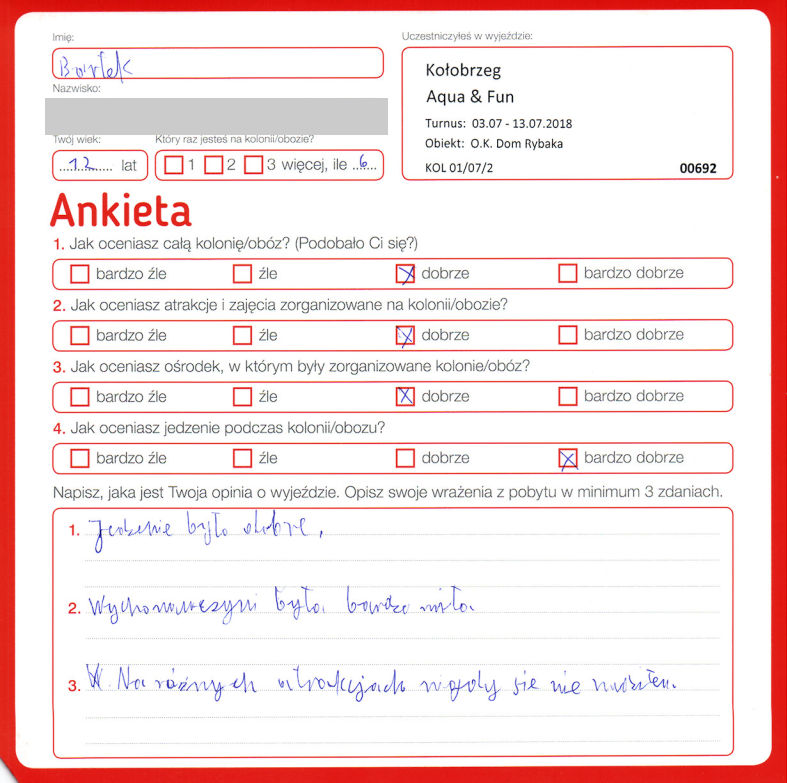 Imię:
Bartek
Nazwisko:
Twój wiek:
12 lat
Który raz jesteś na kolonii/obozie?
1 2 3 więcej, ile 6
Uczestniczyłeś w wyjeździe:
Kołobrzeg
Aqua & Fun
Turnus: 03.07 - 13.07.2018
Obiekt: O.K. Dom Rybaka
KOL 01/07/2 00692
Ankieta
1. Jak oceniasz całą kolonię/obóz? (Podobało Ci się?)
bardzo źle źle dobrze bardzo dobrze
2. Jak oceniasz atrakcje i zajęcia zorganizowane na kolonii/obozie?
bardzo źle źle dobrze bardzo dobrze
3. Jak oceniasz ośrodek, w którym były zorganizowane kolonie/obóz?
bardzo źle źle dobrze bardzo dobrze
4. Jak oceniasz jedzenie podczas kolonii/obozu?
bardzo źle źle dobrze bardzo dobrze
Napisz, jaka jest Twoja opinia o wyjeździe. Opisz swoje wrażenia z pobytu w minimum 3 zdaniach.
1. Jedzenie było dobre,
2. Wychowawczyni była bardzo miła.
3. Na różnych atrakcjach nigdy się nie nudziłem.